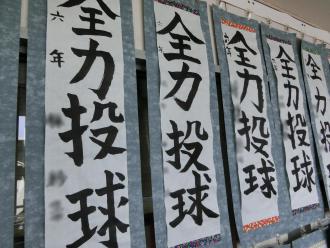 全力投球
六年
全力投球
全力投球
全力投球
全力投球